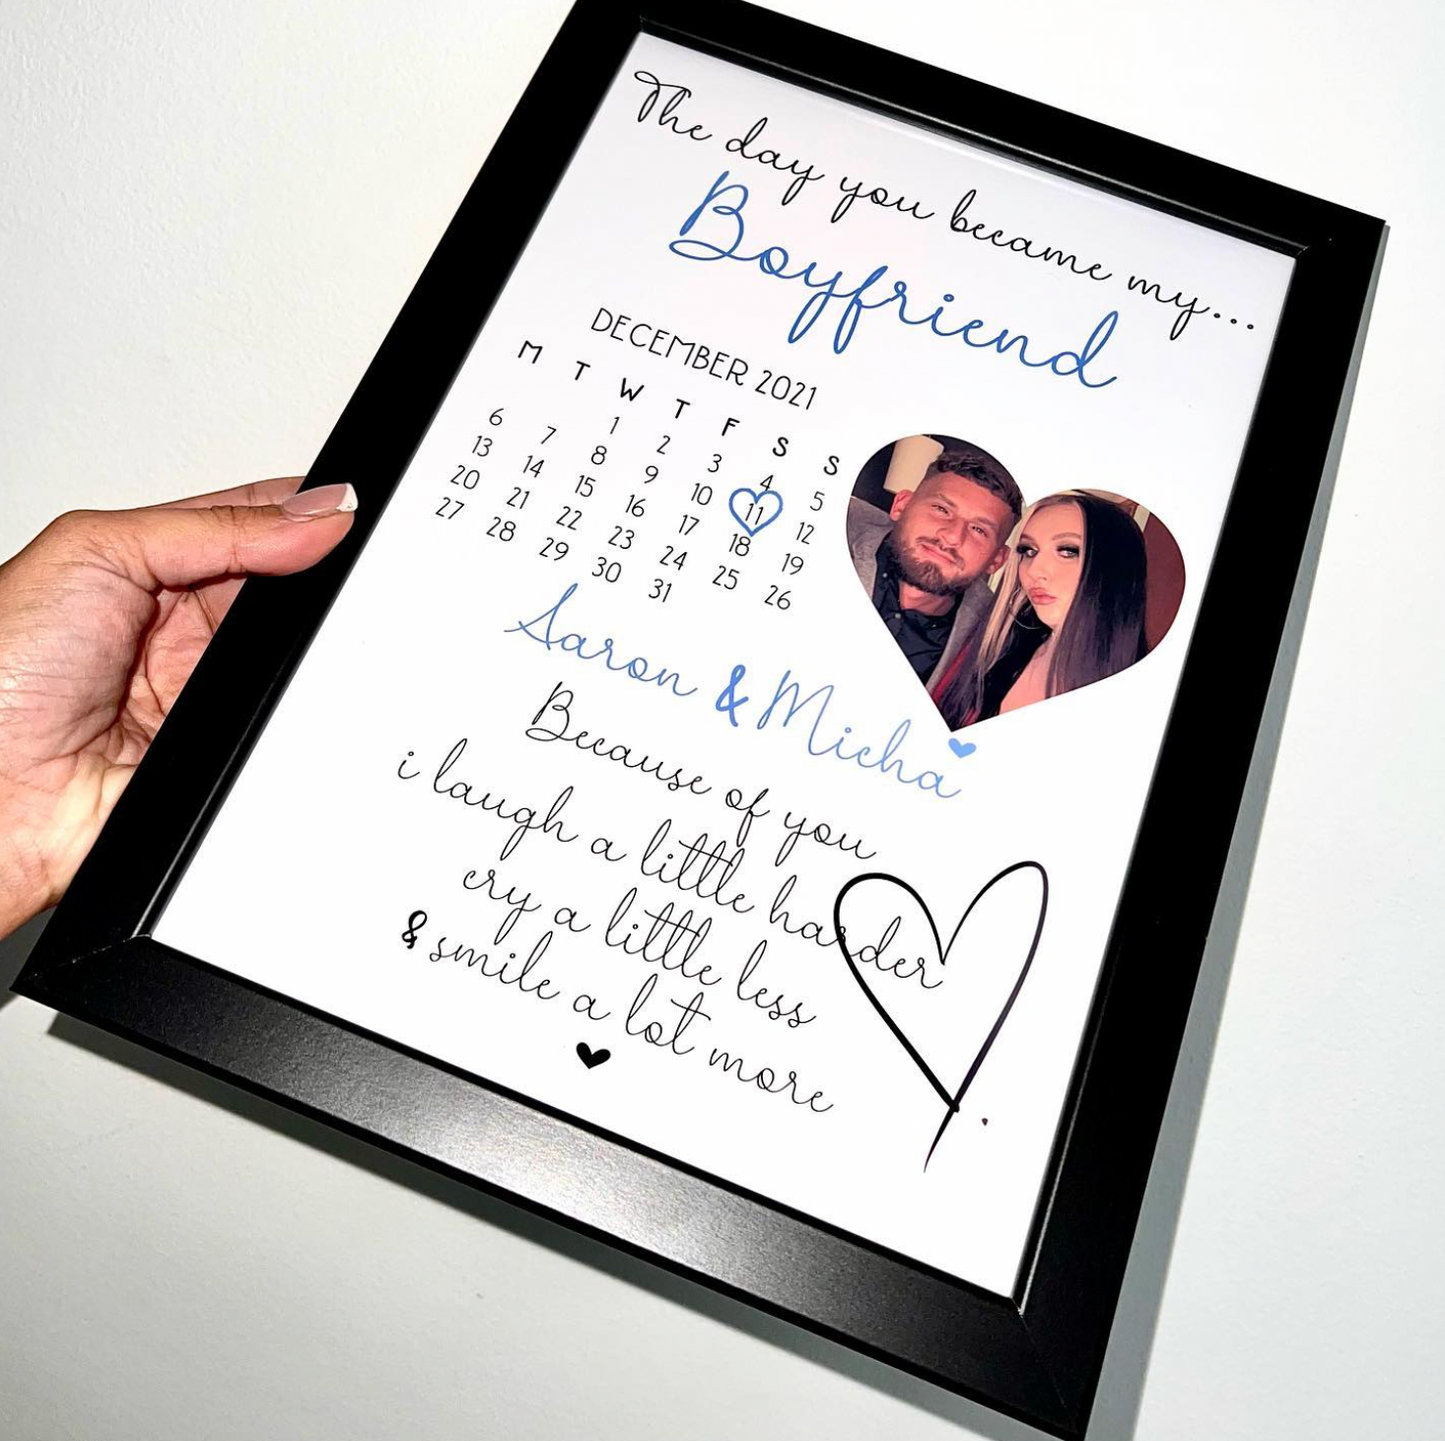 The day you became my...
Boyfriend
DECEMBER 2021
M T W T F S S
1 2 3 4 5
6 7 8 9 10 11 12
13 14 15 16 17 18 19
20 21 22 23 24 25 26
27 28 29 30 31
Aaron & Micha
Because of you
i laugh a little harder
cry a little less
& smile a lot more